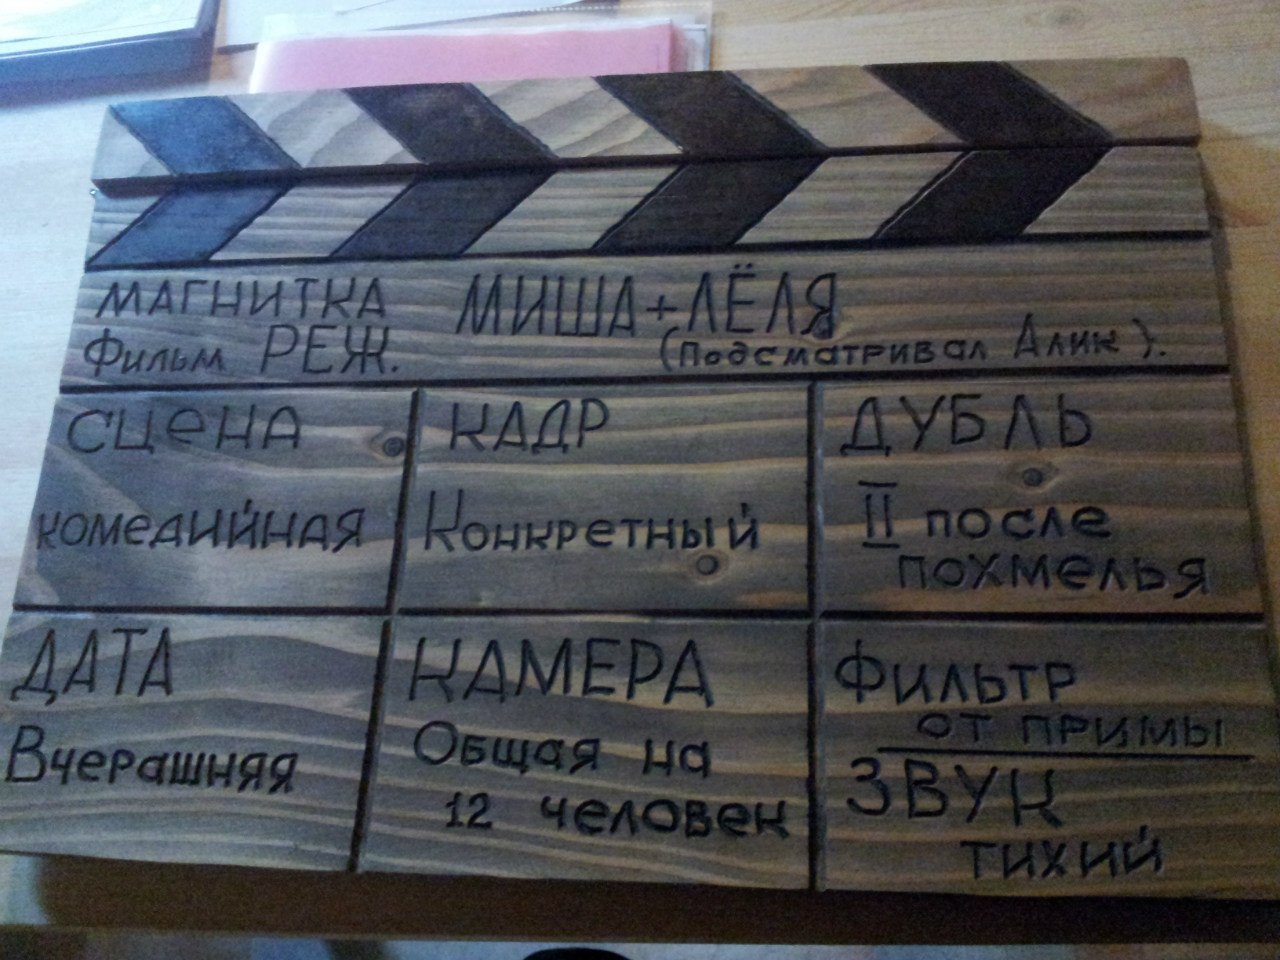 МАГНИТКА МИША+ЛЁЛЯ
Фильм РЕЖ. (Подсматривал Алик).
СЦЕНА
комедийная
КАДР
Конкретный
ДУБЛЬ
II после
похмелья
ДАТА
Вчерашняя
КАМЕРА
Общая на
12 человек
Фильтр
от примы
ЗВУК
тихий